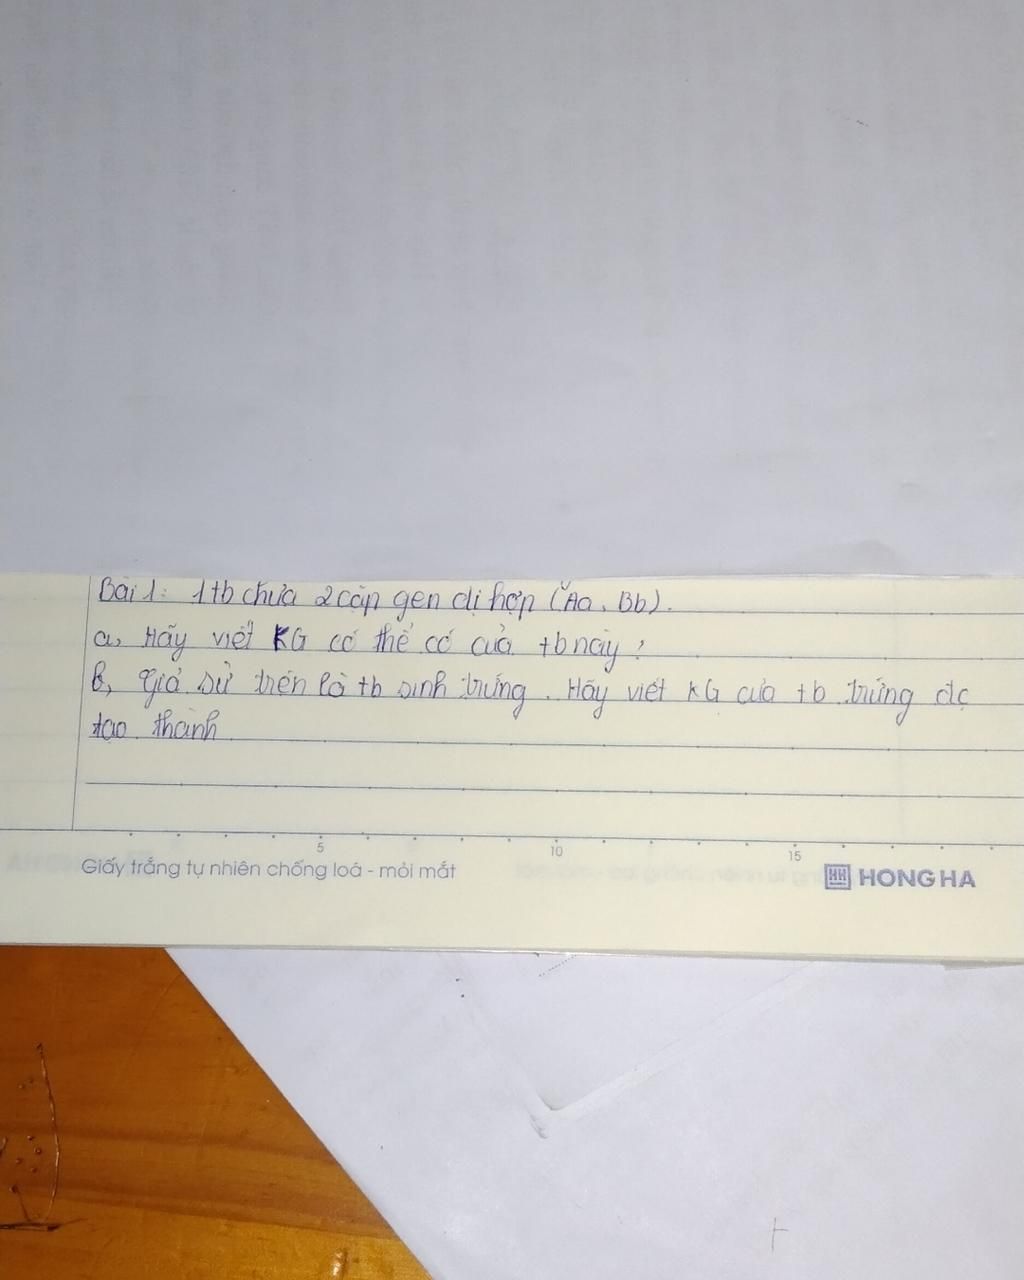 Bài 1: 1 tb chứa 2 cặp gen dị hợp (Aa, Bb).
a, Hãy viết KG có thể có của tb này?
b, Giả sử trên là tb sinh trứng. Hãy viết KG của tb trứng đc
tạo thành
5 10 15
Giấy trắng tự nhiên chống loá - mỏi mắt
HH HONG HA